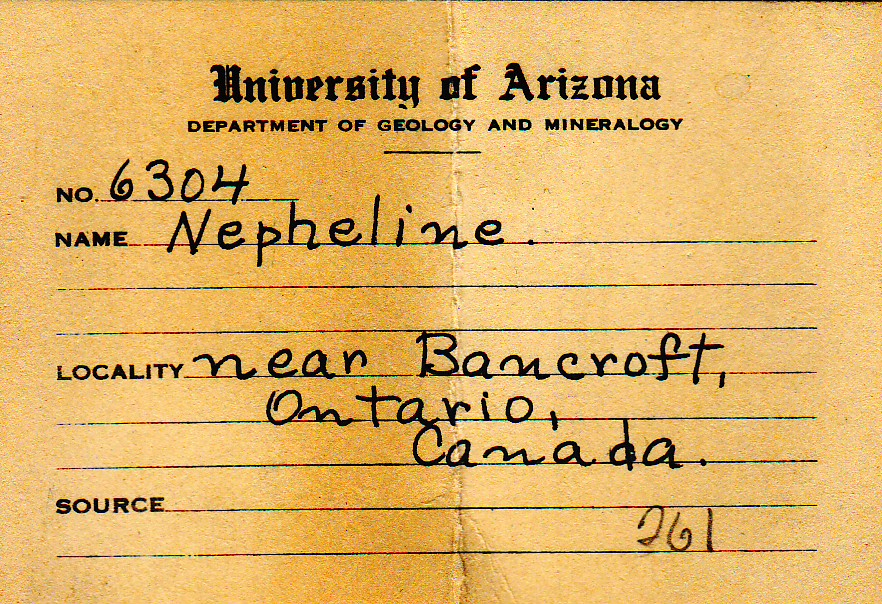 University of Arizona
DEPARTMENT OF GEOLOGY AND MINERALOGY
NO. 6304
NAME Nepheline.
LOCALITY near Bancroft,
Ontario,
Canada.
SOURCE
261